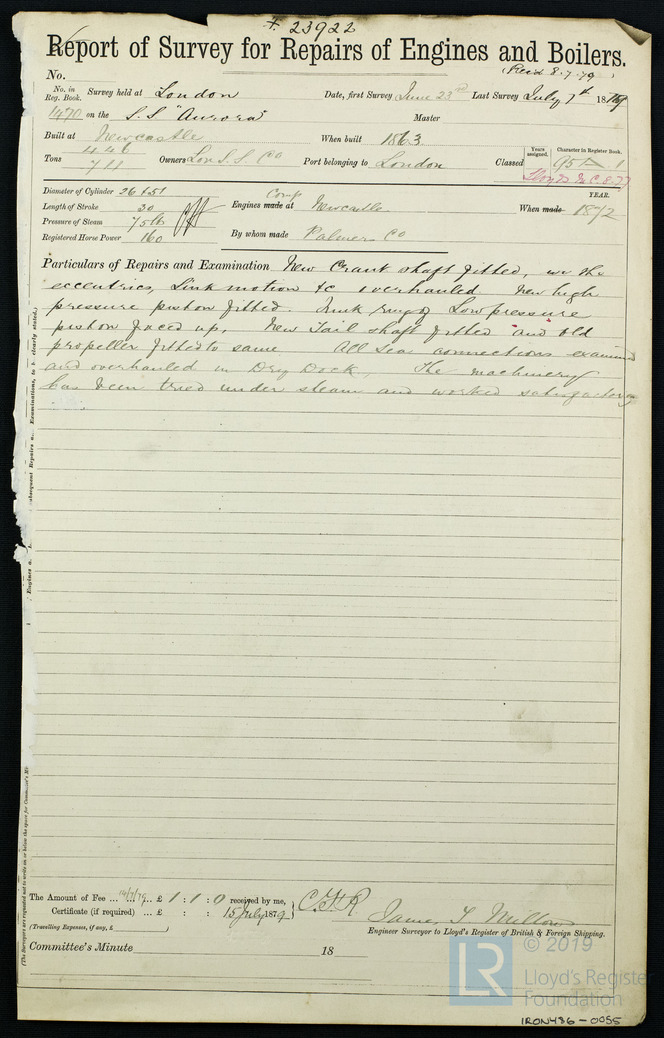 F. 23922
Report of Survey for Repairs of Engines and Boilers.
(Rec'd 8.7.79)
No.
No. in Reg. Book. Survey held at London Date, first Survey June 23rd Last Survey July 7th 1879
1470 on the S.S "Aurora" Master
Built at Newcastle When built 1863.
Tons 446 711 Owners Lon S.S. Co Port belonging to London Classed Years assigned. Character in Register Book. 95 A 1
Lloyds M.C. 8.77
Diameter of Cylinder 26 & 51 YEAR.
Length of Stroke 30 Engines made at Comp Newcastle When made 1872
Pressure of Steam 75 lb
Registered Horse Power 160 By whom made Palmers Co
Particulars of Repairs and Examination New Crank shaft fitted, the
eccentrics, Link motion &c overhauled New high
pressure piston fitted. Junk ring of Low pressure
piston faced up. New Tail shaft fitted and old
propeller fitted to same All Sea connections examined
and overhauled in Dry Dock, The machinery
has been tried under steam and worked satisfactory
Examinations, to be clearly stated.)
subsequent Repairs
(The Surveyors are requested not to write on or below the space for Committee's
The Amount of Fee ... 14/7/79 .. £ 1 : 1 : 0 received by me,
Certificate (if required) ... £ : : 15 July 1879
(Travelling Expenses, if any, £ )
James T Milton
Engineer Surveyor to Lloyd's Register of British & Foreign Shipping.
Committee's Minute 18
LR © 2019
Lloyd's Register
Foundation
IRON486-0055